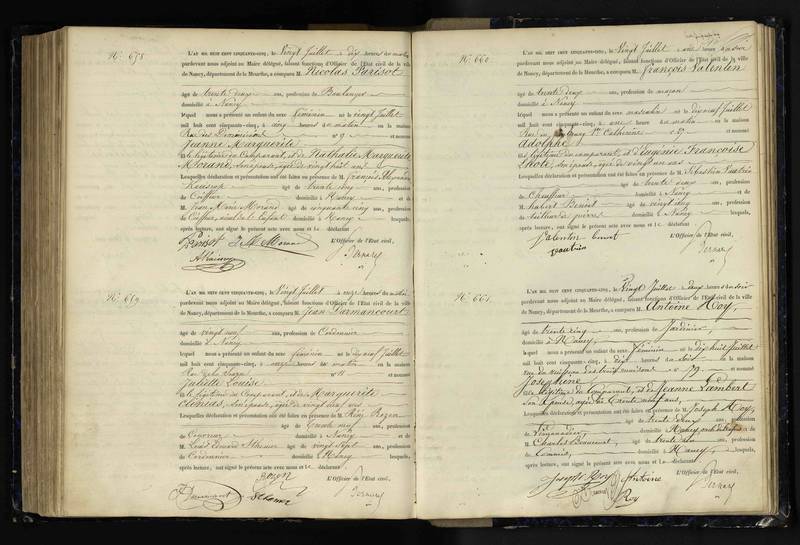 N° 658
L'AN MIL HUIT CENT CINQUANTE-CINQ, le Vingt Juillet à dix heures du matin
pardevant nous adjoint au Maire délégué, faisant fonctions d'Officier de l'Etat civil de la ville
de Nancy, département de la Meurthe, a comparu M. Nicolas Parisot
âgé de trente deux ans, profession de Boulanger
domicilié à Nancy
lequel nous a présenté un enfant du sexe féminin né le vingt Juillet
mil huit cent cinquante-cinq, à cinq heures du matin en la maison
Rue des Dominicains n° 9 et nommé
Jeanne Marguerite
fille légitime du Comparant, et de Nathalie Marguerite
Morand, son épouse, âgée de vingt huit ans
Lesquelles déclaration et présentation ont été faites en présence de M. François
âgé de trente cinq ans, profession
de Coiffeur domicilié à Nancy et de
M. Jean Marie Morand âgé de cinquante cinq ans, profession
de Coiffeur, aïeul de l'Enfant domicilié à Nancy lesquels,
après lecture, ont signé le présent acte avec nous et le déclarant
L'Officier de l'Etat civil,
Parisot J. M. Morand
Bernard
N° 659
L'AN MIL HUIT CENT CINQUANTE-CINQ, le Vingt Juillet à onze heures du matin
pardevant nous adjoint au Maire délégué, faisant fonctions d'Officier de l'Etat civil de la ville
de Nancy, département de la Meurthe, a comparu M. Jean Darmancourt
âgé de vingt neuf ans, profession de Cordonnier
domicilié à Nancy
lequel nous a présenté un enfant du sexe féminin né le dix neuf Juillet
mil huit cent cinquante-cinq, à onze heures du matin en la maison
Rue de la n° 11 et nommé
Juliette Louise
fille légitime du Comparant, et de Marguerite
son épouse, âgée de vingt deux ans
Lesquelles déclaration et présentation ont été faites en présence de M. Rozon
âgé de trente neuf ans, profession
de domicilié à Nancy et de
M. Louis Edouard âgé de vingt sept ans, profession
de Cordonnier domicilié à Nancy lesquels,
après lecture, ont signé le présent acte avec nous et le déclarant
L'Officier de l'Etat civil,
Rozon
Bernard
N° 660
L'AN MIL HUIT CENT CINQUANTE-CINQ, le Vingt Juillet à une heure du soir
pardevant nous adjoint au Maire délégué, faisant fonctions d'Officier de l'Etat civil de la ville
de Nancy, département de la Meurthe, a comparu M. François Valentin
âgé de trente deux ans, profession de maçon
domicilié à Nancy
lequel nous a présenté un enfant du sexe masculin né le dix neuf Juillet
mil huit cent cinquante-cinq, à une heure du matin en la maison
Rue du faubourg Ste Catherine n° 27 et nommé
Adolphe
fils légitime du comparant, et d'Eugénie Françoise
son épouse, âgée de vingt un ans
Lesquelles déclaration et présentation ont été faites en présence de M. Sébastien Vautrin
âgé de trente deux ans, profession
de Chauffeur domicilié à Nancy et de
M. Hubert Benoit âgé de vingt cinq ans, profession
de tailleur de pierres domicilié à Nancy lesquels,
après lecture, ont signé le présent acte avec nous et le déclarant
Valentin Benoit
L'Officier de l'Etat civil,
Vautrin
Bernard
N° 661
L'AN MIL HUIT CENT CINQUANTE-CINQ, le Vingt Juillet à deux heures du soir
pardevant nous adjoint au Maire délégué, faisant fonctions d'Officier de l'Etat civil de la ville
de Nancy, département de la Meurthe, a comparu M. Antoine Roy,
âgé de trente cinq ans, profession de Jardinier
domicilié à Nancy,
lequel nous a présenté un enfant du sexe féminin né le dix huit Juillet
mil huit cent cinquante-cinq, à dix heures du soir en la maison
rue du faubourg des trois maisons n° 79 et nommé
Joséphine
fille légitime du Comparant, et de Jeanne Lambert
son Epouse, âgée de trente neuf ans,
Lesquelles déclaration et présentation ont été faites en présence de M. Joseph Roy,
âgé de trente deux ans, profession
de domicilié à Nancy et de
M. Charles âgé de trente six ans, profession
de Commis, domicilié à Nancy, lesquels,
après lecture, ont signé le présent acte avec nous et le déclarant
L'Officier de l'Etat civil,
Joseph Roy Antoine
Roy
Bernard